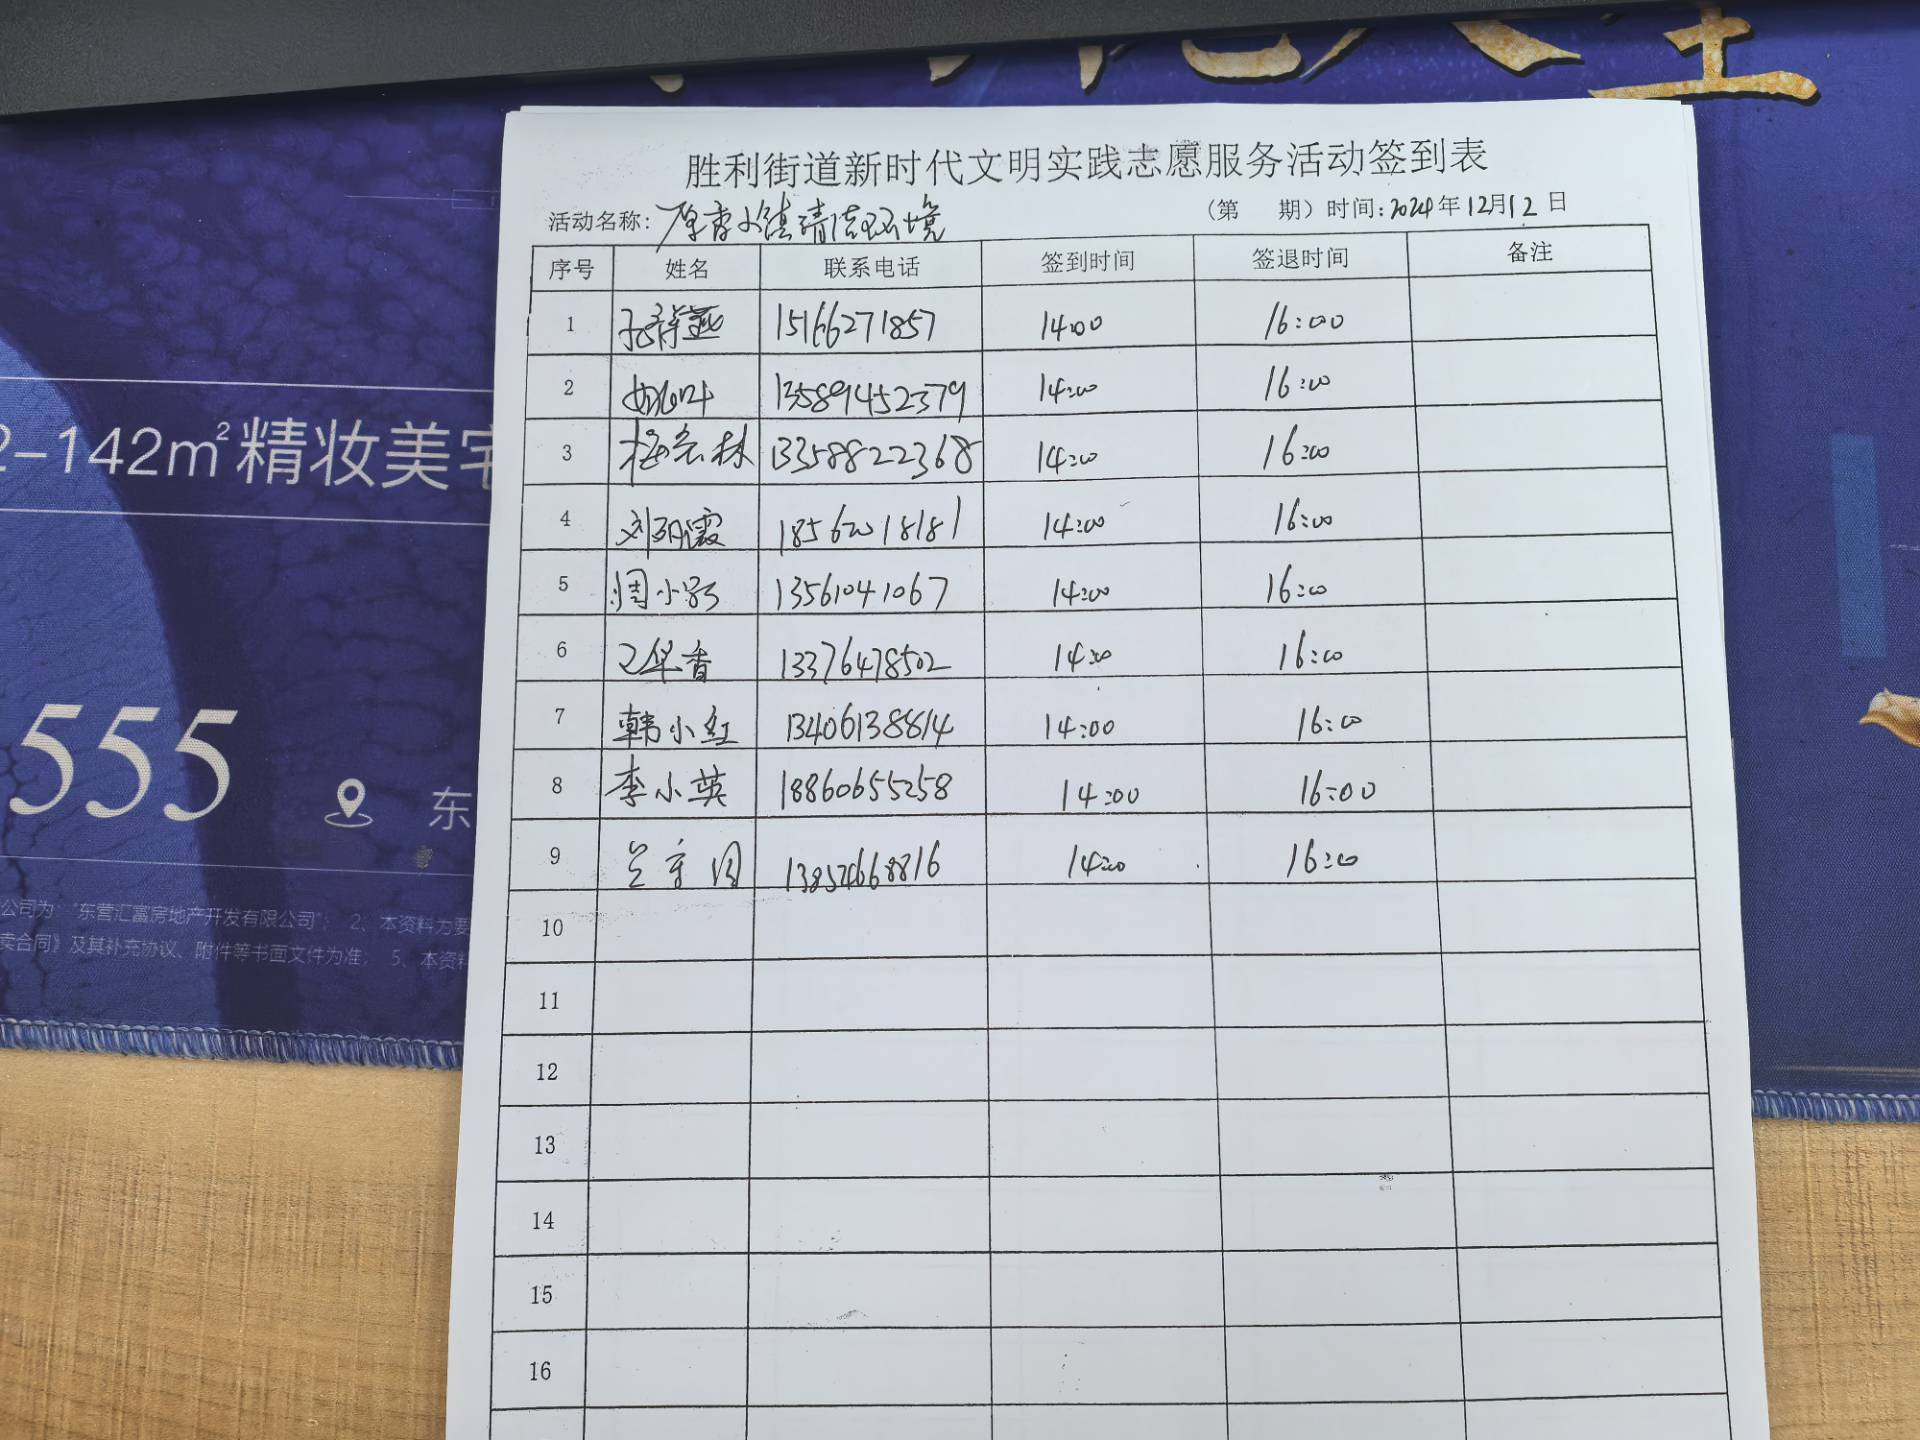 胜利街道新时代文明实践志愿服务活动签到表
活动名称: 小镇清洁环境 (第 期) 时间: 2024年12月12日
序号 姓名 联系电话 签到时间 签退时间 备注
1 15166271857 14:00 16:00
2 姚叶 13589452379 14:00 16:00
3 梅宏林 13358822368 14:00 16:00
4 刘明霞 18562018181 14:00 16:00
5 周小 13561041067 14:00 16:00
6 华香 13376478502 14:00 16:00
7 韩小红 13406138814 14:00 16:00
8 李小英 18860655258 14:00 16:00
9 14:00 16:00
10
11
12
13
14
15
16
2-142m²精妆美宅
555
东
公司为:"东营汇富房地产开发有限公司"; 2、本资料为要
卖合同》及其补充协议、附件等书面文件为准; 5、本资料